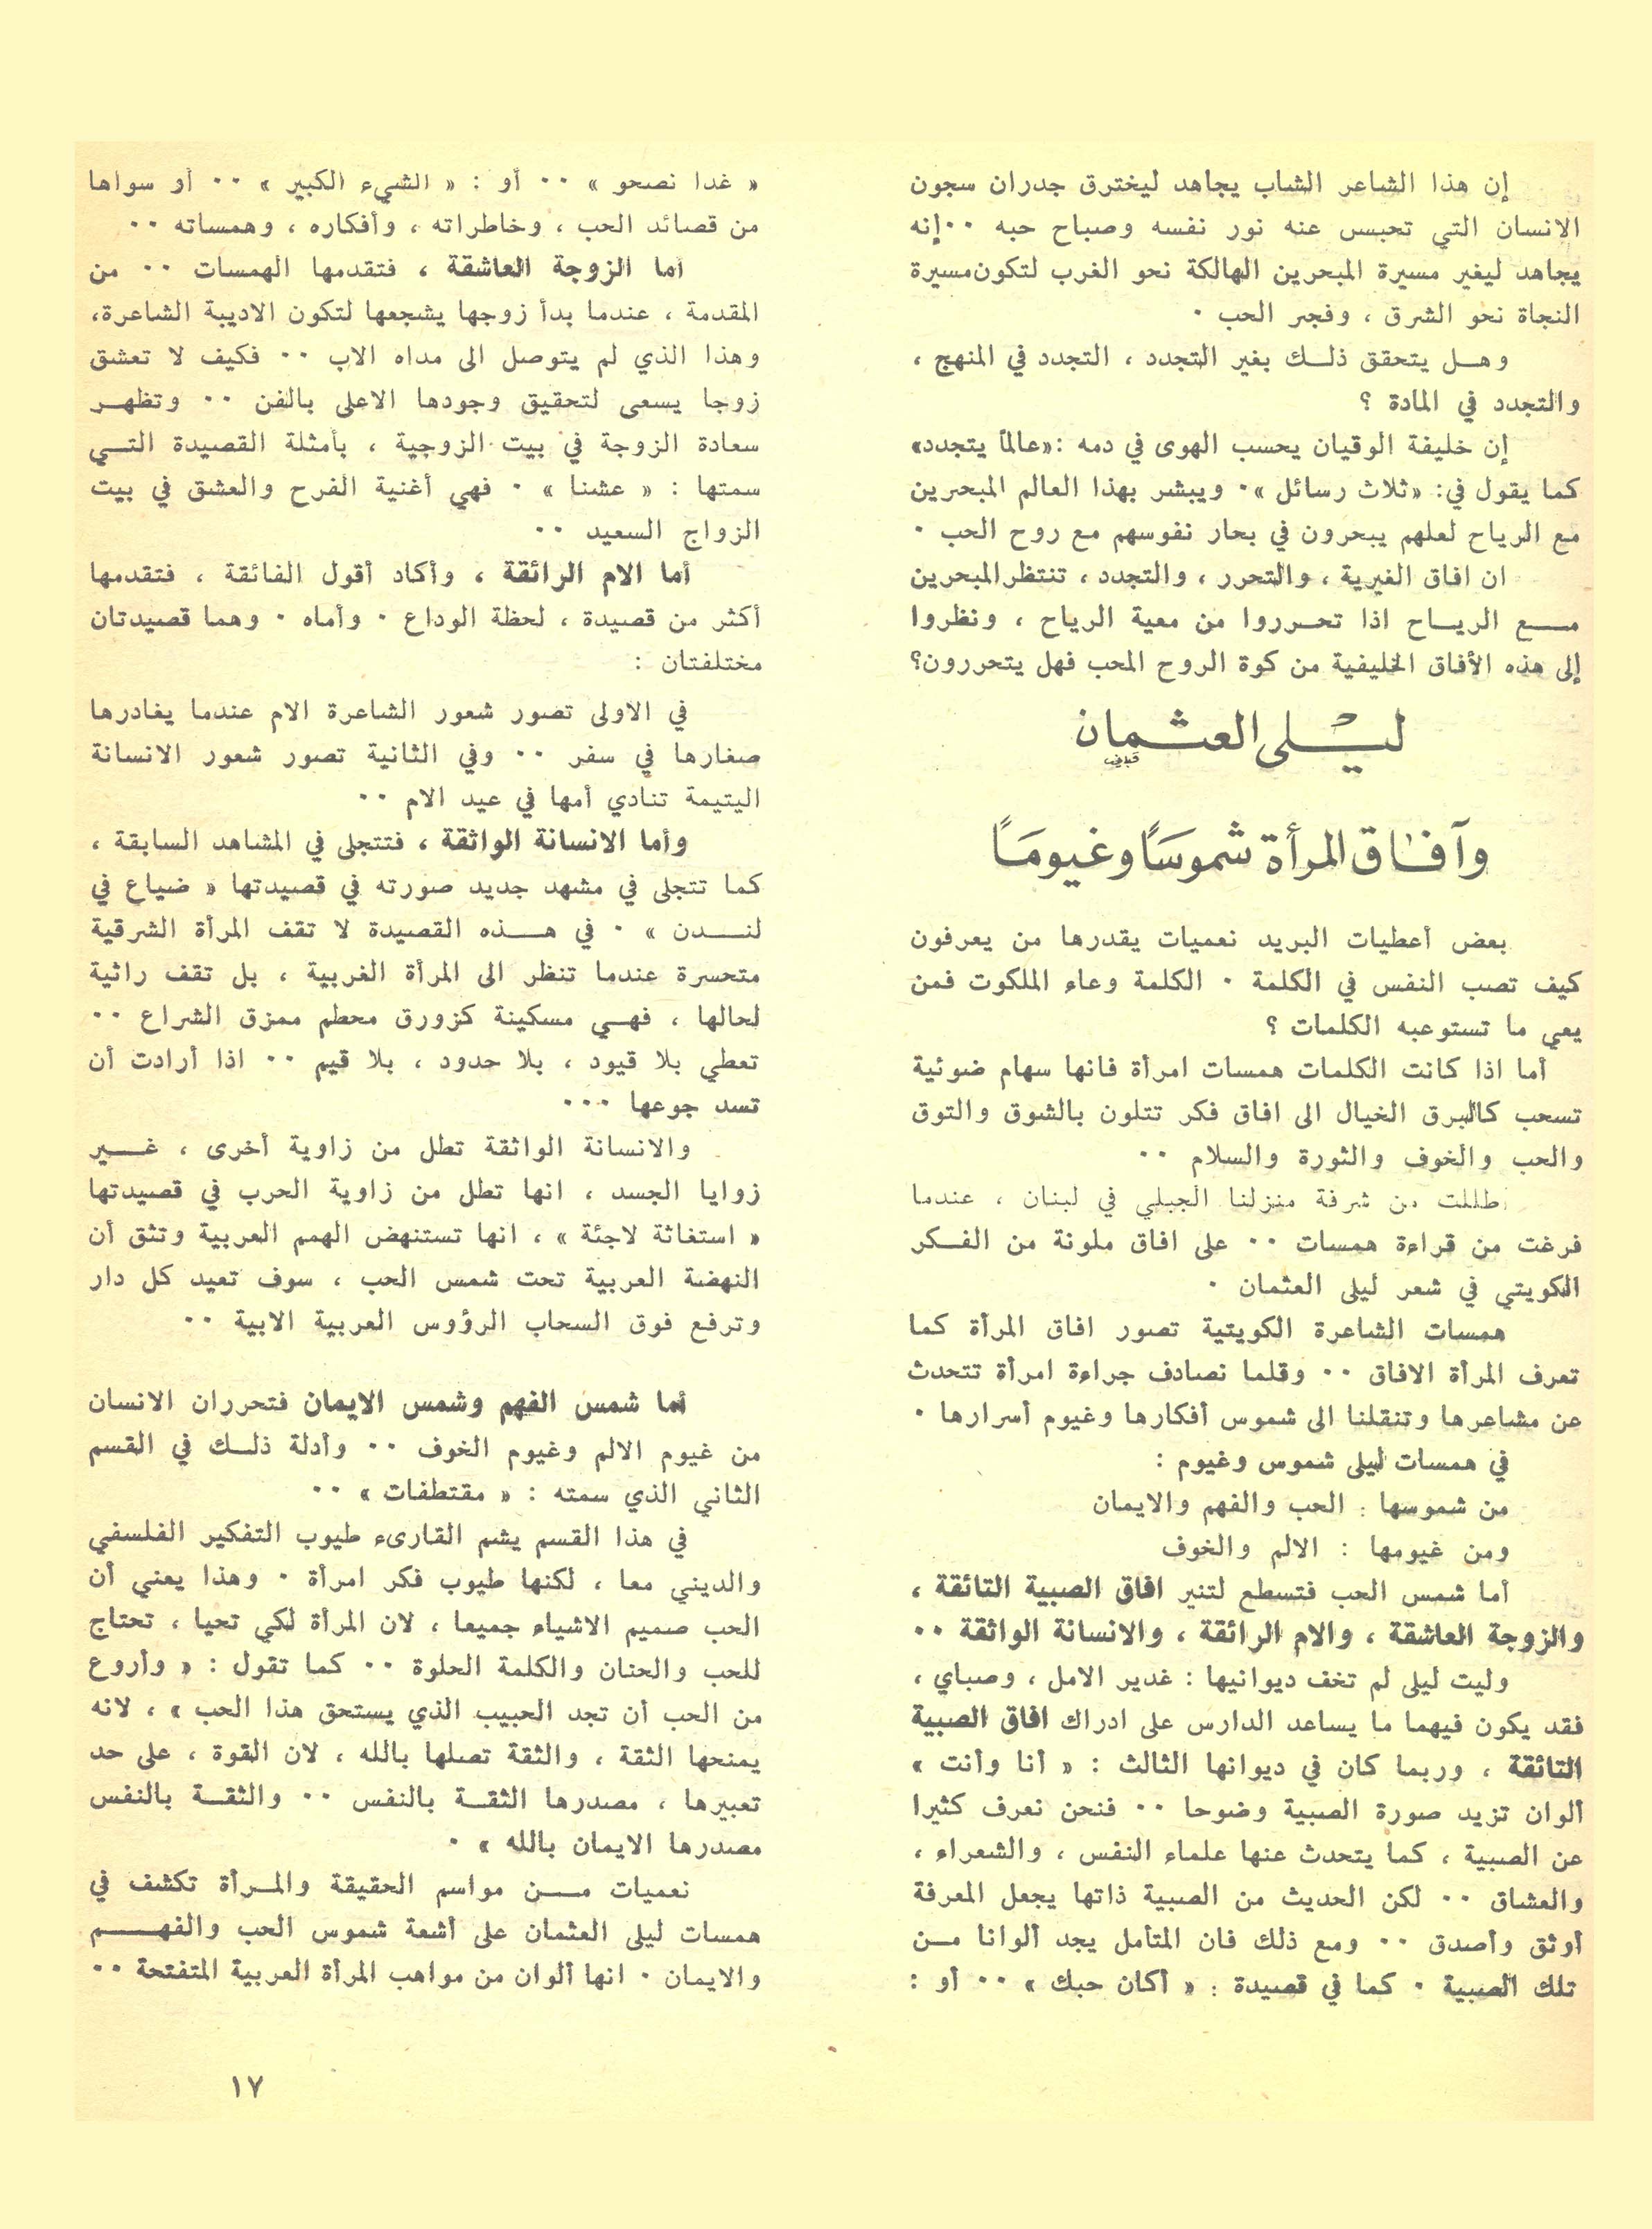 إن هذا الشاعر الشاب يجاهد ليخترق جدران سجون
الانسان التي تحبس عنه نور نفسه وصباح حبه ٠٠إنه
يجاهد ليغير مسيرة المبحرين الهالكة نحو الغرب لتكون مسيرة
النجاة نحو الشرق ، وفجر الحب ٠
وهـل يتحقق ذلـك بغير التجدد ، التجدد في المنهج ،
والتجدد في المادة ؟
إن خليفة الوقيان يحسب الهوى في دمه :«عالماً يتجدد»
كما يقول في: «ثلاث رسائل »٠ ويبشر بهذا العالم المبحرين
مع الرياح لعلهم يبحرون في بحار نفوسهم مع روح الحب ٠
ان افاق الغيرية ، والتحرر ، والتجدد ، تنتظر المبحرين
مـــع الريـاح اذا تحـرروا من معية الرياح ، ونظروا
إلى هذه الأفاق الخليفية من كوة الروح المحب فهل يتحررون؟
ليـلى العثـمان
وآفاق المرأة شموسًا وغيومًا
بعض أعطيات البريد نعميات يقدرها من يعرفون
كيف تصب النفس في الكلمة ٠ الكلمة وعاء الملكوت فمن
يعي ما تستوعبه الكلمات ؟
أما اذا كانت الكلمات همسات امرأة فانها سهام ضوئية
تسحب كالبرق الخيال الى افاق فكر تتلون بالشوق والتوق
والحب والخوف والثورة والسلام ٠٠
اطللت من شرفة منزلنا الجبلي في لبنان ، عندما
فرغت من قراءة همسات ٠٠ على افاق ملونة من الفـكر
الكويتي في شعر ليلى العثمان ٠
همسات الشاعرة الكويتية تصور افاق المرأة كما
تعرف المرأة الافاق ٠٠ وقلما نصادف جراءة امرأة تتحدث
عن مشاعرها وتنقلنا الى شموس أفكارها وغيوم أسرارها ٠
في همسات ليلى شموس وغيوم :
من شموسها : الحب والفهم والايمان
ومن غيومها : الالم والخوف
أما شمس الحب فتسطع لتنير افاق الصبية التائقة ،
والزوجة العاشقة ، والام الرائقة ، والانسانة الواثقة ٠٠
وليت ليلى لم تخف ديوانيها : غدير الامل ، وصباي ،
فقد يكون فيهما ما يساعد الدارس على ادراك افاق الصبية
التائقة ، وربما كان في ديوانها الثالث : « أنا وأنت »
ألوان تزيد صورة الصبية وضوحا ٠٠ فنحن نعرف كثيرا
عن الصبية ، كما يتحدث عنها علماء النفس ، والشعراء ،
والعشاق ٠٠ لكن الحديث من الصبية ذاتها يجعل المعرفة
أوثق وأصدق ٠٠ ومع ذلك فان المتأمل يجد ألوانا مـن
تلك الصبية ٠ كما في قصيدة : « أكان حبك » ٠٠ أو :
« غدا نصحو » ٠٠ أو : « الشيء الكبير » ٠٠ أو سواها
من قصائد الحب ، وخاطراته ، وأفكاره ، وهمساته ٠٠
أما الزوجة العاشقة ، فتقدمها الهمسات ٠٠ من
المقدمة ، عندما بدأ زوجها يشجعها لتكون الاديبة الشاعرة،
وهذا الذي لم يتوصل الى مداه الاب ٠٠ فكيف لا تعشق
زوجا يسعى لتحقيق وجودها الاعلى بالفن ٠٠ وتظهـر
سعادة الزوجة في بيت الزوجية ، بأمثلة القصيدة التـي
سمتها : « عشنا » ٠ فهي أغنية الفرح والعشق في بيت
الزواج السعيد ٠٠
أما الام الرائقة ، وأكاد أقول الفائقة ، فتقدمها
أكثر من قصيدة ، لحظة الوداع ٠ وأماه ٠ وهما قصيدتان
مختلفتان :
في الاولى تصور شعور الشاعرة الام عندما يغادرها
صغارها في سفر ٠٠ وفي الثانية تصور شعور الانسانة
اليتيمة تنادي أمها في عيد الام ٠٠
وأما الانسانة الواثقة ، فتتجلى في المشاهد السابقة ،
كما تتجلى في مشهد جديد صورته في قصيدتها « ضياع في
لنـــدن » ٠ في هـــذه القصيدة لا تقف المرأة الشرقية
متحسرة عندما تنظر الى المرأة الغربية ، بل تقف راثية
لحالها ، فهـي مسكينة كزورق محطم ممزق الشراع ٠٠
تعطي بلا قيود ، بلا حدود ، بلا قيم ٠٠ اذا أرادت أن
تسد جوعها ٠٠٠
والانسانة الواثقة تطل من زاوية أخرى ، غــير
زوايا الجسد ، انها تطل من زاوية الحرب في قصيدتها
« استغاثة لاجئة » ، انها تستنهض الهمم العربية وتثق أن
النهضة العربية تحت شمس الحب ، سوف تعيد كل دار
وترفع فوق السحاب الرؤوس العربية الابية ٠٠
أما شمس الفهم وشمس الايمان فتحرران الانسان
من غيوم الالم وغيوم الخوف ٠٠ وأدلة ذلـك في القسم
الثاني الذي سمته : « مقتطفات » ٠٠
في هذا القسم يشم القارىء طيوب التفكير الفلسفي
والديني معا ، لكنها طيوب فكر امرأة ٠ وهذا يعني أن
الحب صميم الاشياء جميعا ، لان المرأة لكي تحيا ، تحتاج
للحب والحنان والكلمة الحلوة ٠٠ كما تقول : « وأروع
من الحب أن تجد الحبيب الذي يستحق هذا الحب » ، لانه
يمنحها الثقة ، والثقة تصلها بالله ، لان القوة ، على حد
تعبيرها ، مصدرها الثقـة بالنفس ٠٠ والثقـة بالنفس
مصدرها الايمان بالله » ٠
نعميات مـــن مواسم الحقيقة والمـرأة تكشف في
همسات ليلى العثمان على أشعة شموس الحب والفهــــم
والايمان ٠ انها ألوان من مواهب المرأة العربية المتفتحة ٠٠
١٧